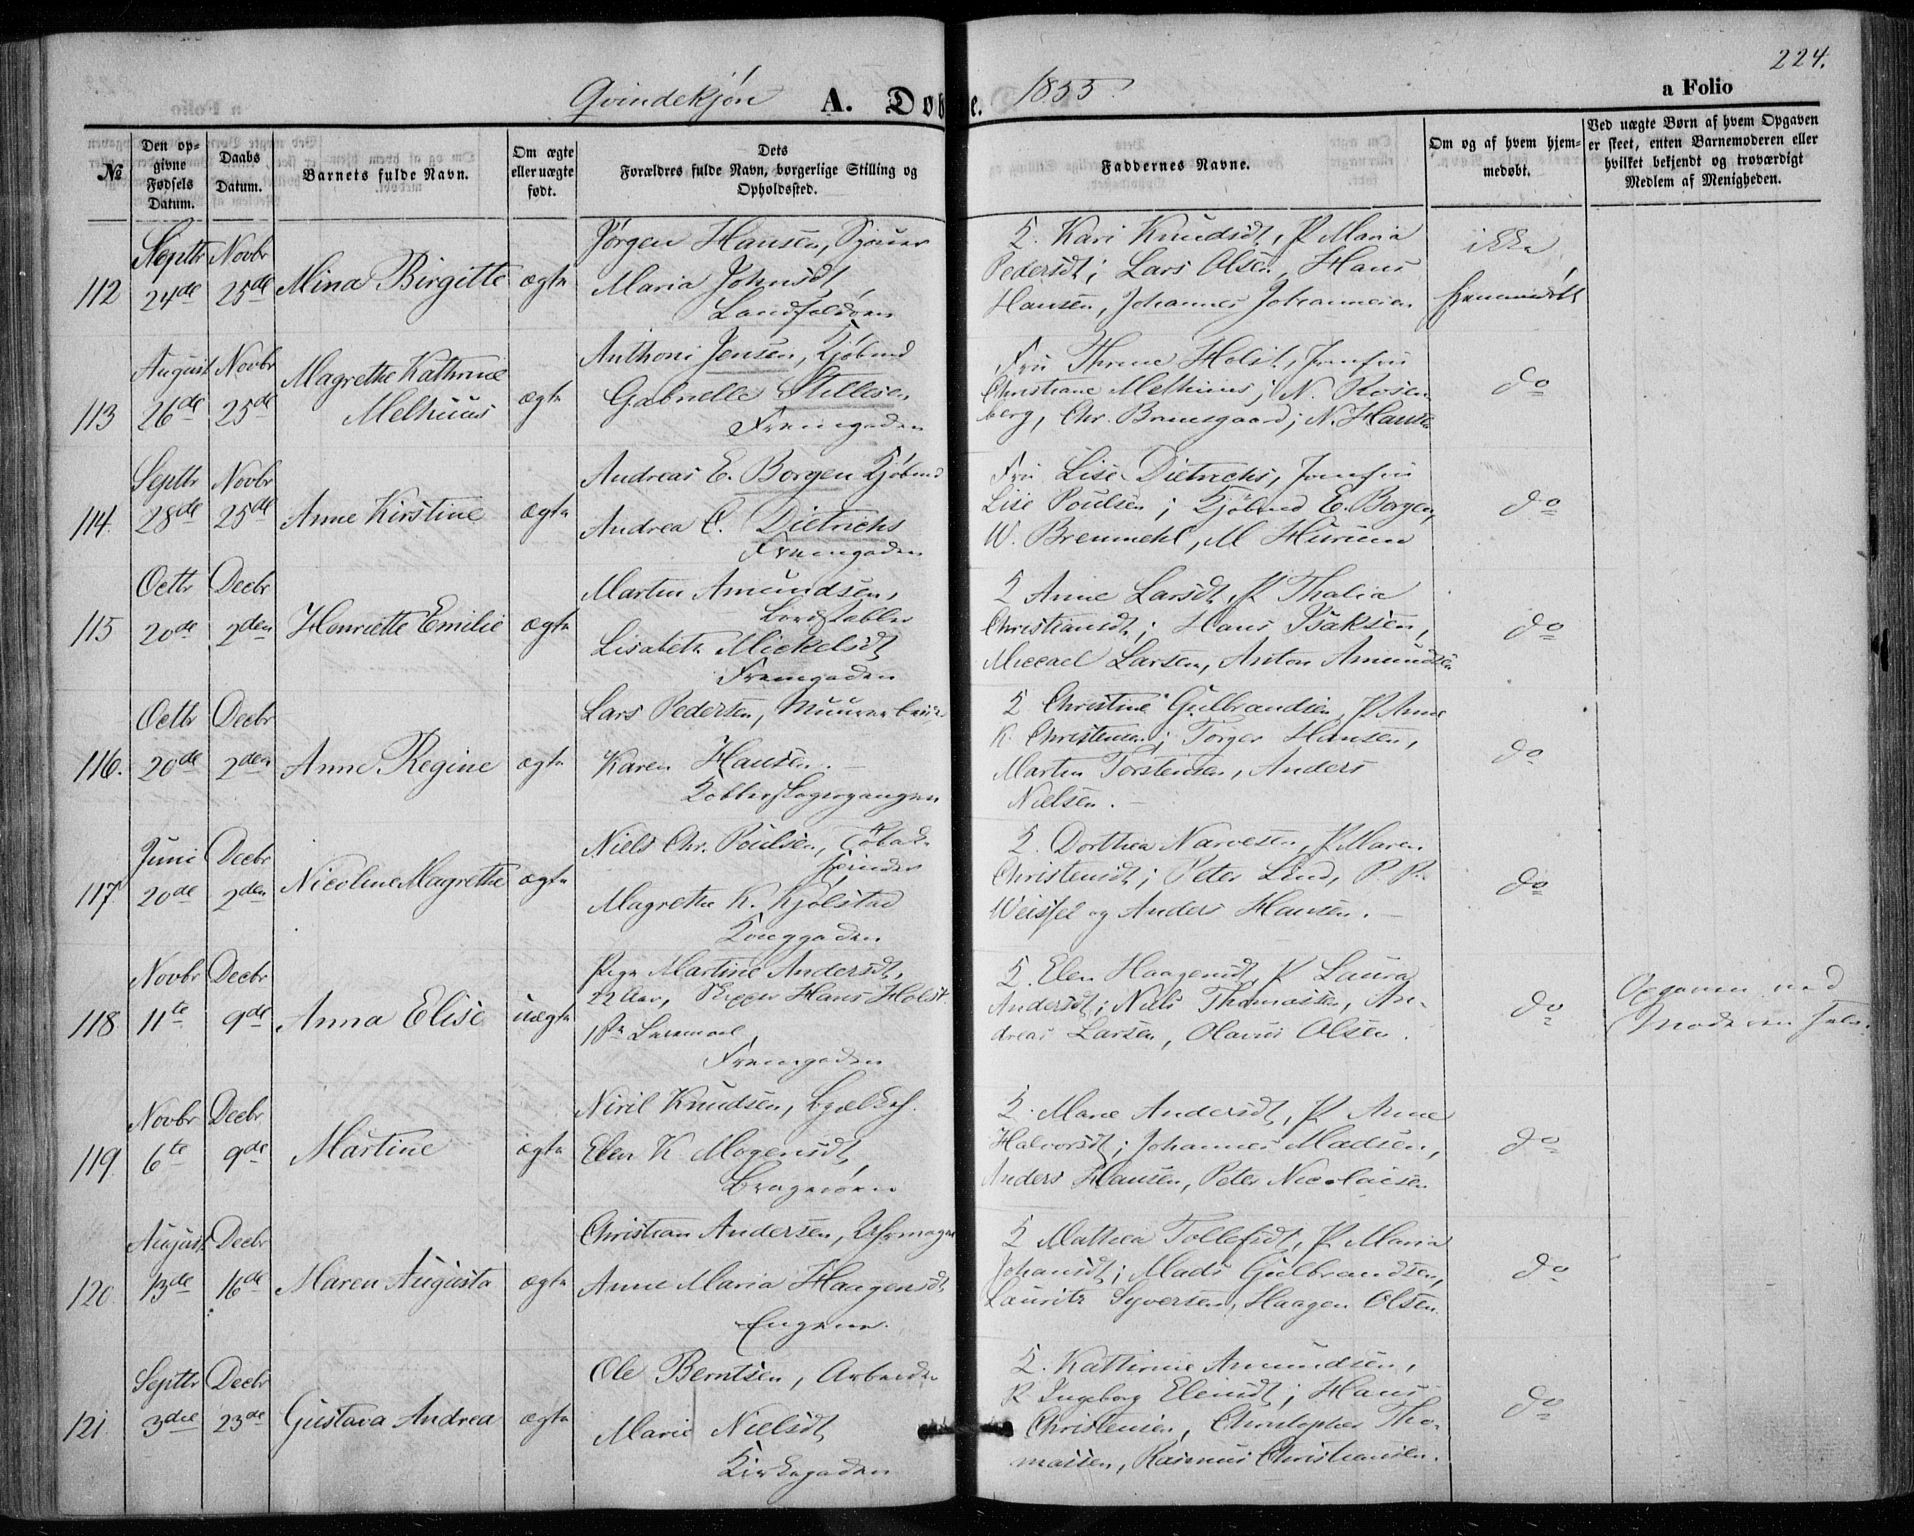 224.
Qvindekjøn A. Døbte. 1855. a Folio
№
Den opgivne Fødsels Datum.
Daabs Datum.
Barnets fulde Navn.
Om ægte eller uægte født.
Dets Forældres fulde Navn, borgerlige Stilling og Opholdssted.
Faddernes Navne.
Om og af hvem hjemmedøbt.
Ved uægte Børn af hvem Opgaven er skeet, enten Barnemoderen eller hvilket bekjendt og troværdigt Medlem af Menigheden.
112 Septbr 24de Novbr 25de Mina Birgitte ægte
Jørgen Hansen, Sjouer
Maria Johnsdt,
Landfaldøen
K. Kari Knudsdt, P Maria
Pedersdt; Lars Olsen, Hans
Hansen, Johannes Johannesen
ikke
hjemmedøbt
113 August 26de Novbr 25de Magrethe Kathrine
Melhuus ægte
Anthoni Jensen, Kjøbmd
Gabrielle Stillesen,
Fremgaden
Fru Thrine Holst, Jomfru
Christiane Melhuus; N. Rosen
berg, Chr. Bramsgaard; N. Hansen
do
114. Septbr 28de Novbr 25de Anne Kirstine ægte
Andreas E. Borgen Kjøbmd
Andrea C. Dietrichs
Fremgaden
Fru Lise Dietrichs, Jomfru
Lise Poulsen; Kjøbmd E. Borgen,
W. Bremmehl, M Hurum
do
115 Octbr 20de Decbr 2den Henriette Emilie ægte
Martin Amundsen,
Bordstabler
Lisabeth Mickelsdt,
Fremgaden
K Anne Larsdt, P Thalia
Christiansdt; Hans Isaksen,
Miccael Larsen, Anton Amundsen
do
116. Octbr 20de Decbr 2den Anne Regine ægte
Lars Pedersen, Muurarbeid
Karen Hansen.
Kobberslagergangen
K Christine Gulbrandsen, P. Anne
K. Christensen; Torger Hansen,
Martin Torstensen, Anders
Nielsen.
do
117 Juni 20de Decbr 2den Nicoline Magrethe ægte
Niels Chr. Poulsen, Tobak
spinder
Magrethe K. Kjølstad
Konggaden
K. Dorthea Narvesen, P. Maren
Christensdt; Peter Lind, P. P.
Weissel og Anders Hansen.
do
118 Novbr 11te Decbr 9de Anna Elise uægte
Pige Martine Andersdt,
22 Aar, Skipper Hans Holst
1ste Leiermaal,
Fremgaden
K. Elen Haagensdt, P Laura
Andersdt; Niels Thomassen, An-
dreas Larsen, Olaves Olsen.
do
Opgaven ved
Moderen selv.
119. Novbr 6te Decbr 9de Martine ægte
Niril Knudsen,
Elen K Mogensdt,
Bragnøren
K. Marie Andersdt, P. Anne
Halvorsdt; Johannes Madsen,
Anders Hansen, Peter Nicolaisen
do
120. August 13de Decbr 16de Maren Augusta ægte
Christian Andersen, Uhrmager
Anne Maria Haagensdt
Engene.
K Mathea Tollefsdt, P. Maria
Johansdt; Mads Gulbrandsen,
Lauritz Syversen, Haagen Olsen.
do
121. Septbr 3die Decbr 23de Gustava Andrea ægte
Ole Berntsen, Arbeider
Marie Nielsdt,
Kirkegaden
K. Kathrine Amundsen,
P. Ingeborg Eleindt; Hans
Christensen, Christopher Tho-
massen, Rasmus Christiansen.
do